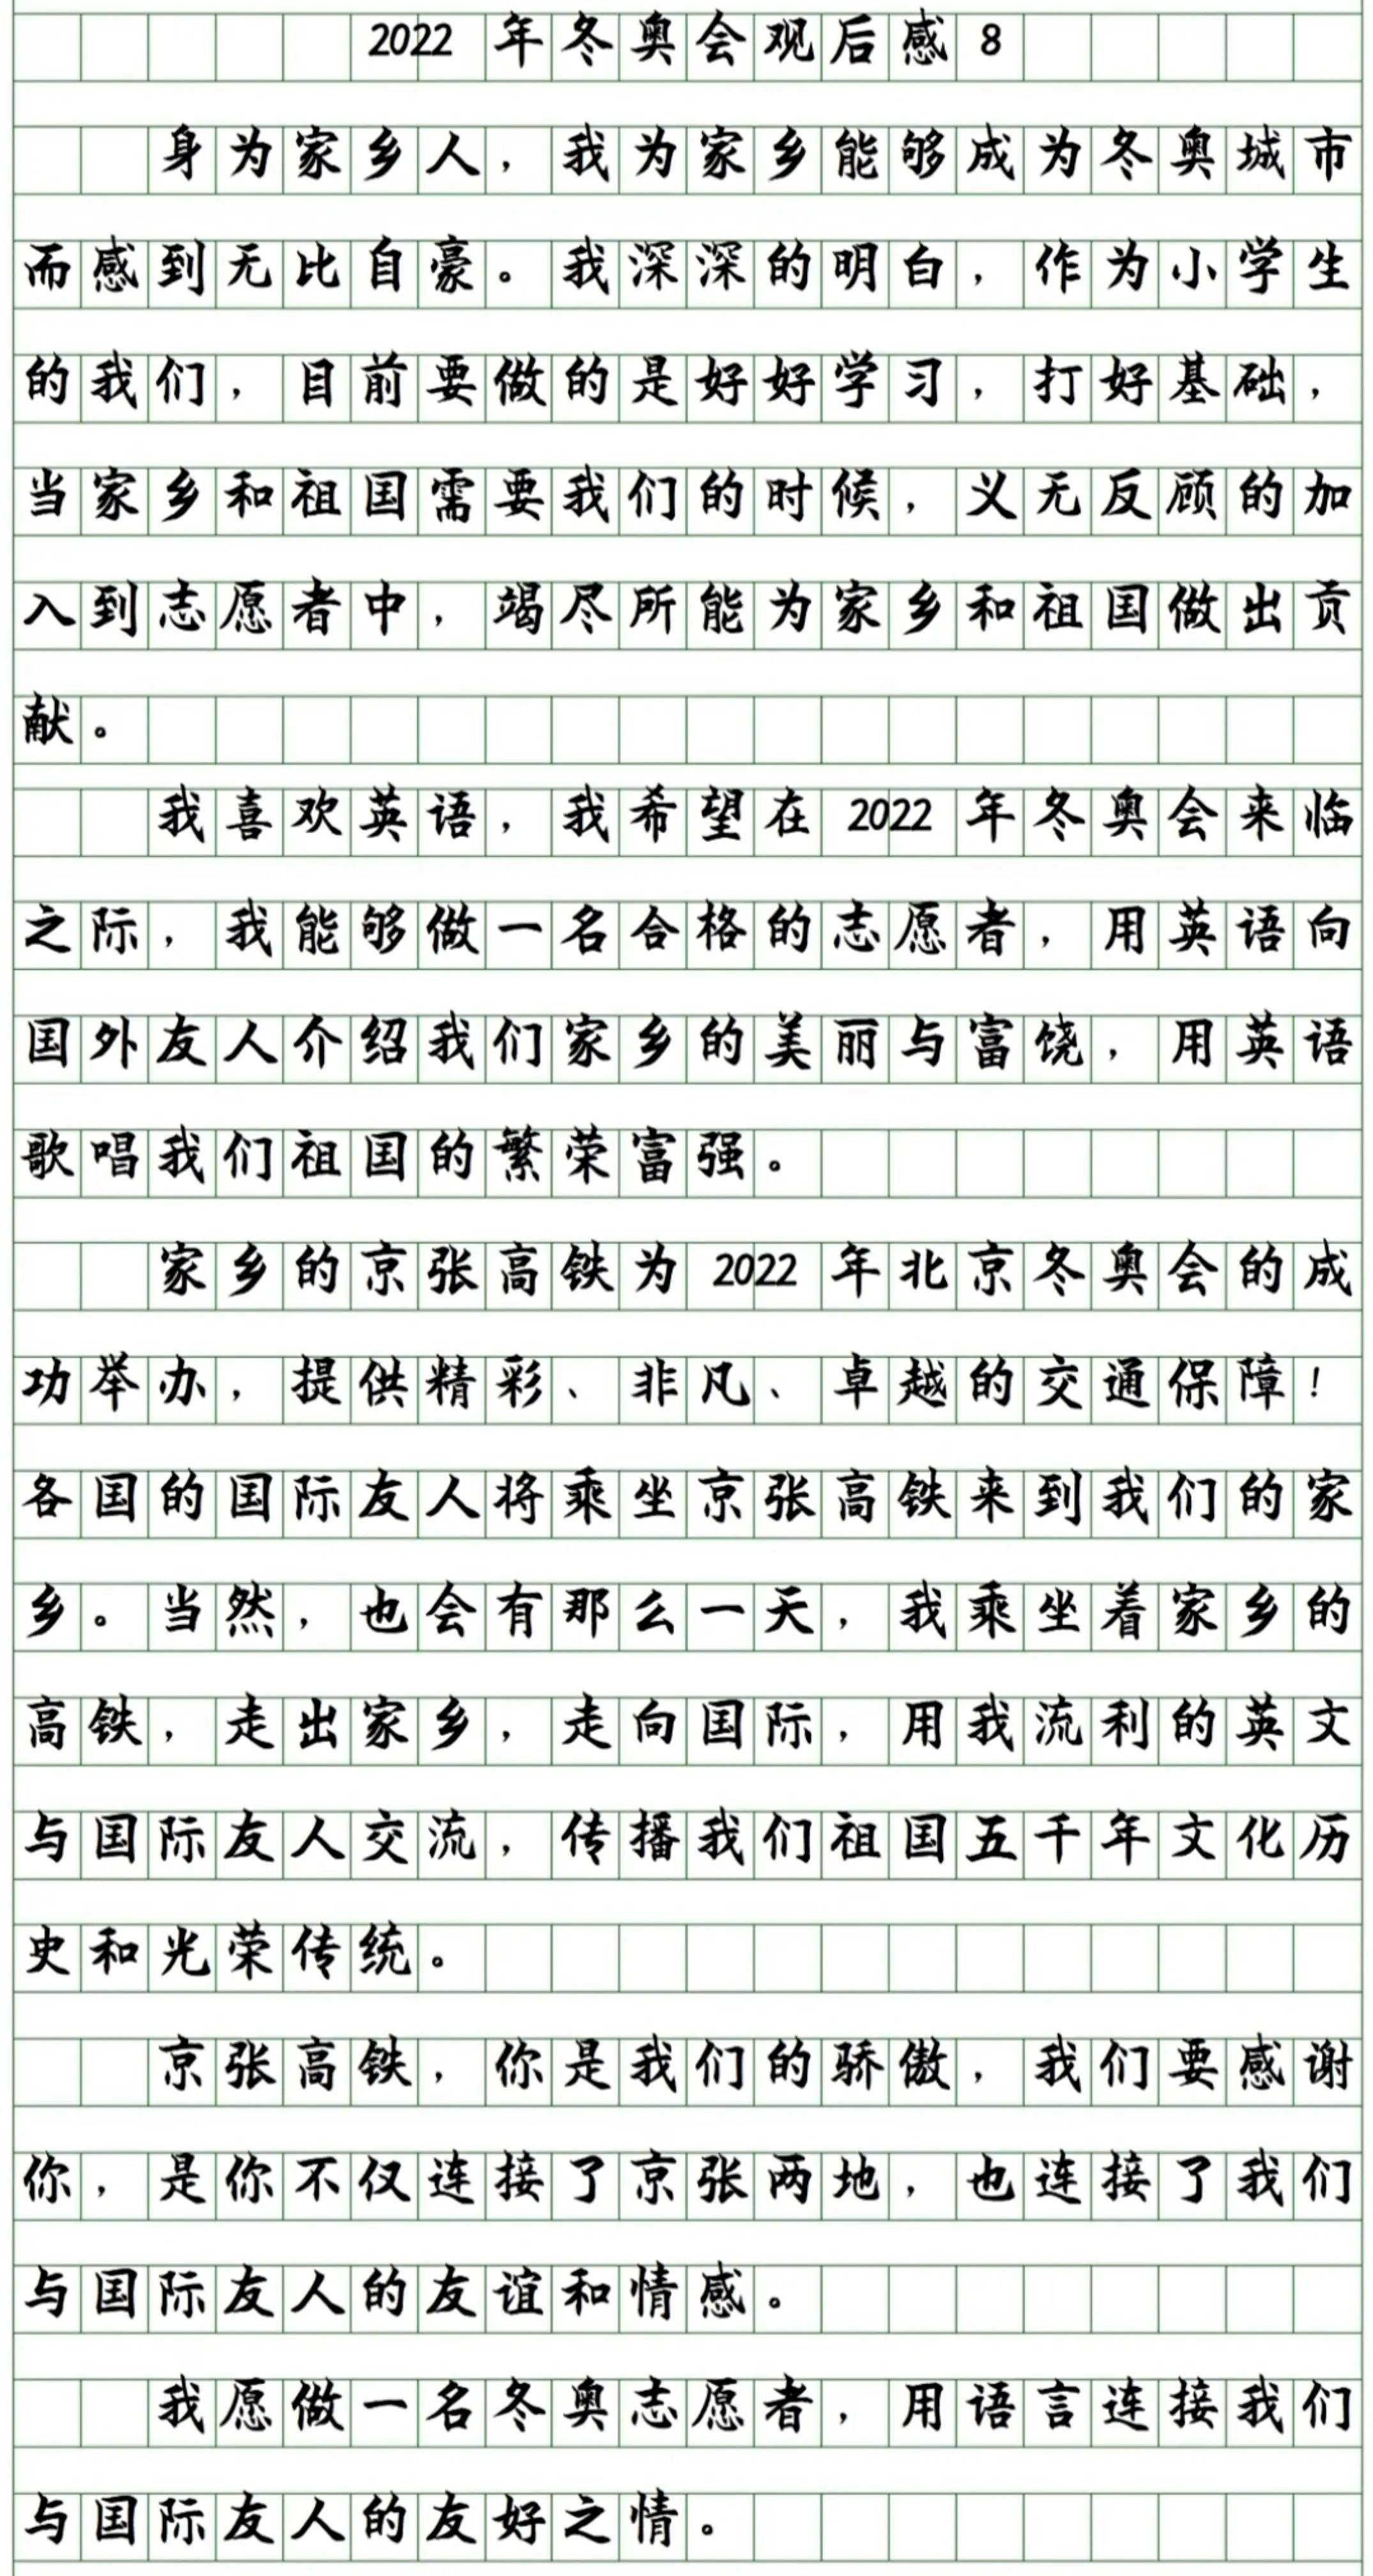 2022年冬奥会观后感8
身为家乡人，我为家乡能够成为冬奥城市
而感到无比自豪。我深深的明白，作为小学生
的我们，目前要做的是好好学习，打好基础，
当家乡和祖国需要我们的时候，义无反顾的加
入到志愿者中，竭尽所能为家乡和祖国做出贡
献。
我喜欢英语，我希望在2022年冬奥会来临
之际，我能够做一名合格的志愿者，用英语向
国外友人介绍我们家乡的美丽与富饶，用英语
歌唱我们祖国的繁荣富强。
家乡的京张高铁为2022年北京冬奥会的成
功举办，提供精彩、非凡、卓越的交通保障！
各国的国际友人将乘坐京张高铁来到我们的家
乡。当然，也会有那么一天，我乘坐着家乡的
高铁，走出家乡，走向国际，用我流利的英文
与国际友人交流，传播我们祖国五千年文化历
史和光荣传统。
京张高铁，你是我们的骄傲，我们要感谢
你，是你不仅连接了京张两地，也连接了我们
与国际友人的友谊和情感。
我愿做一名冬奥志愿者，用语言连接我们
与国际友人的友好之情。